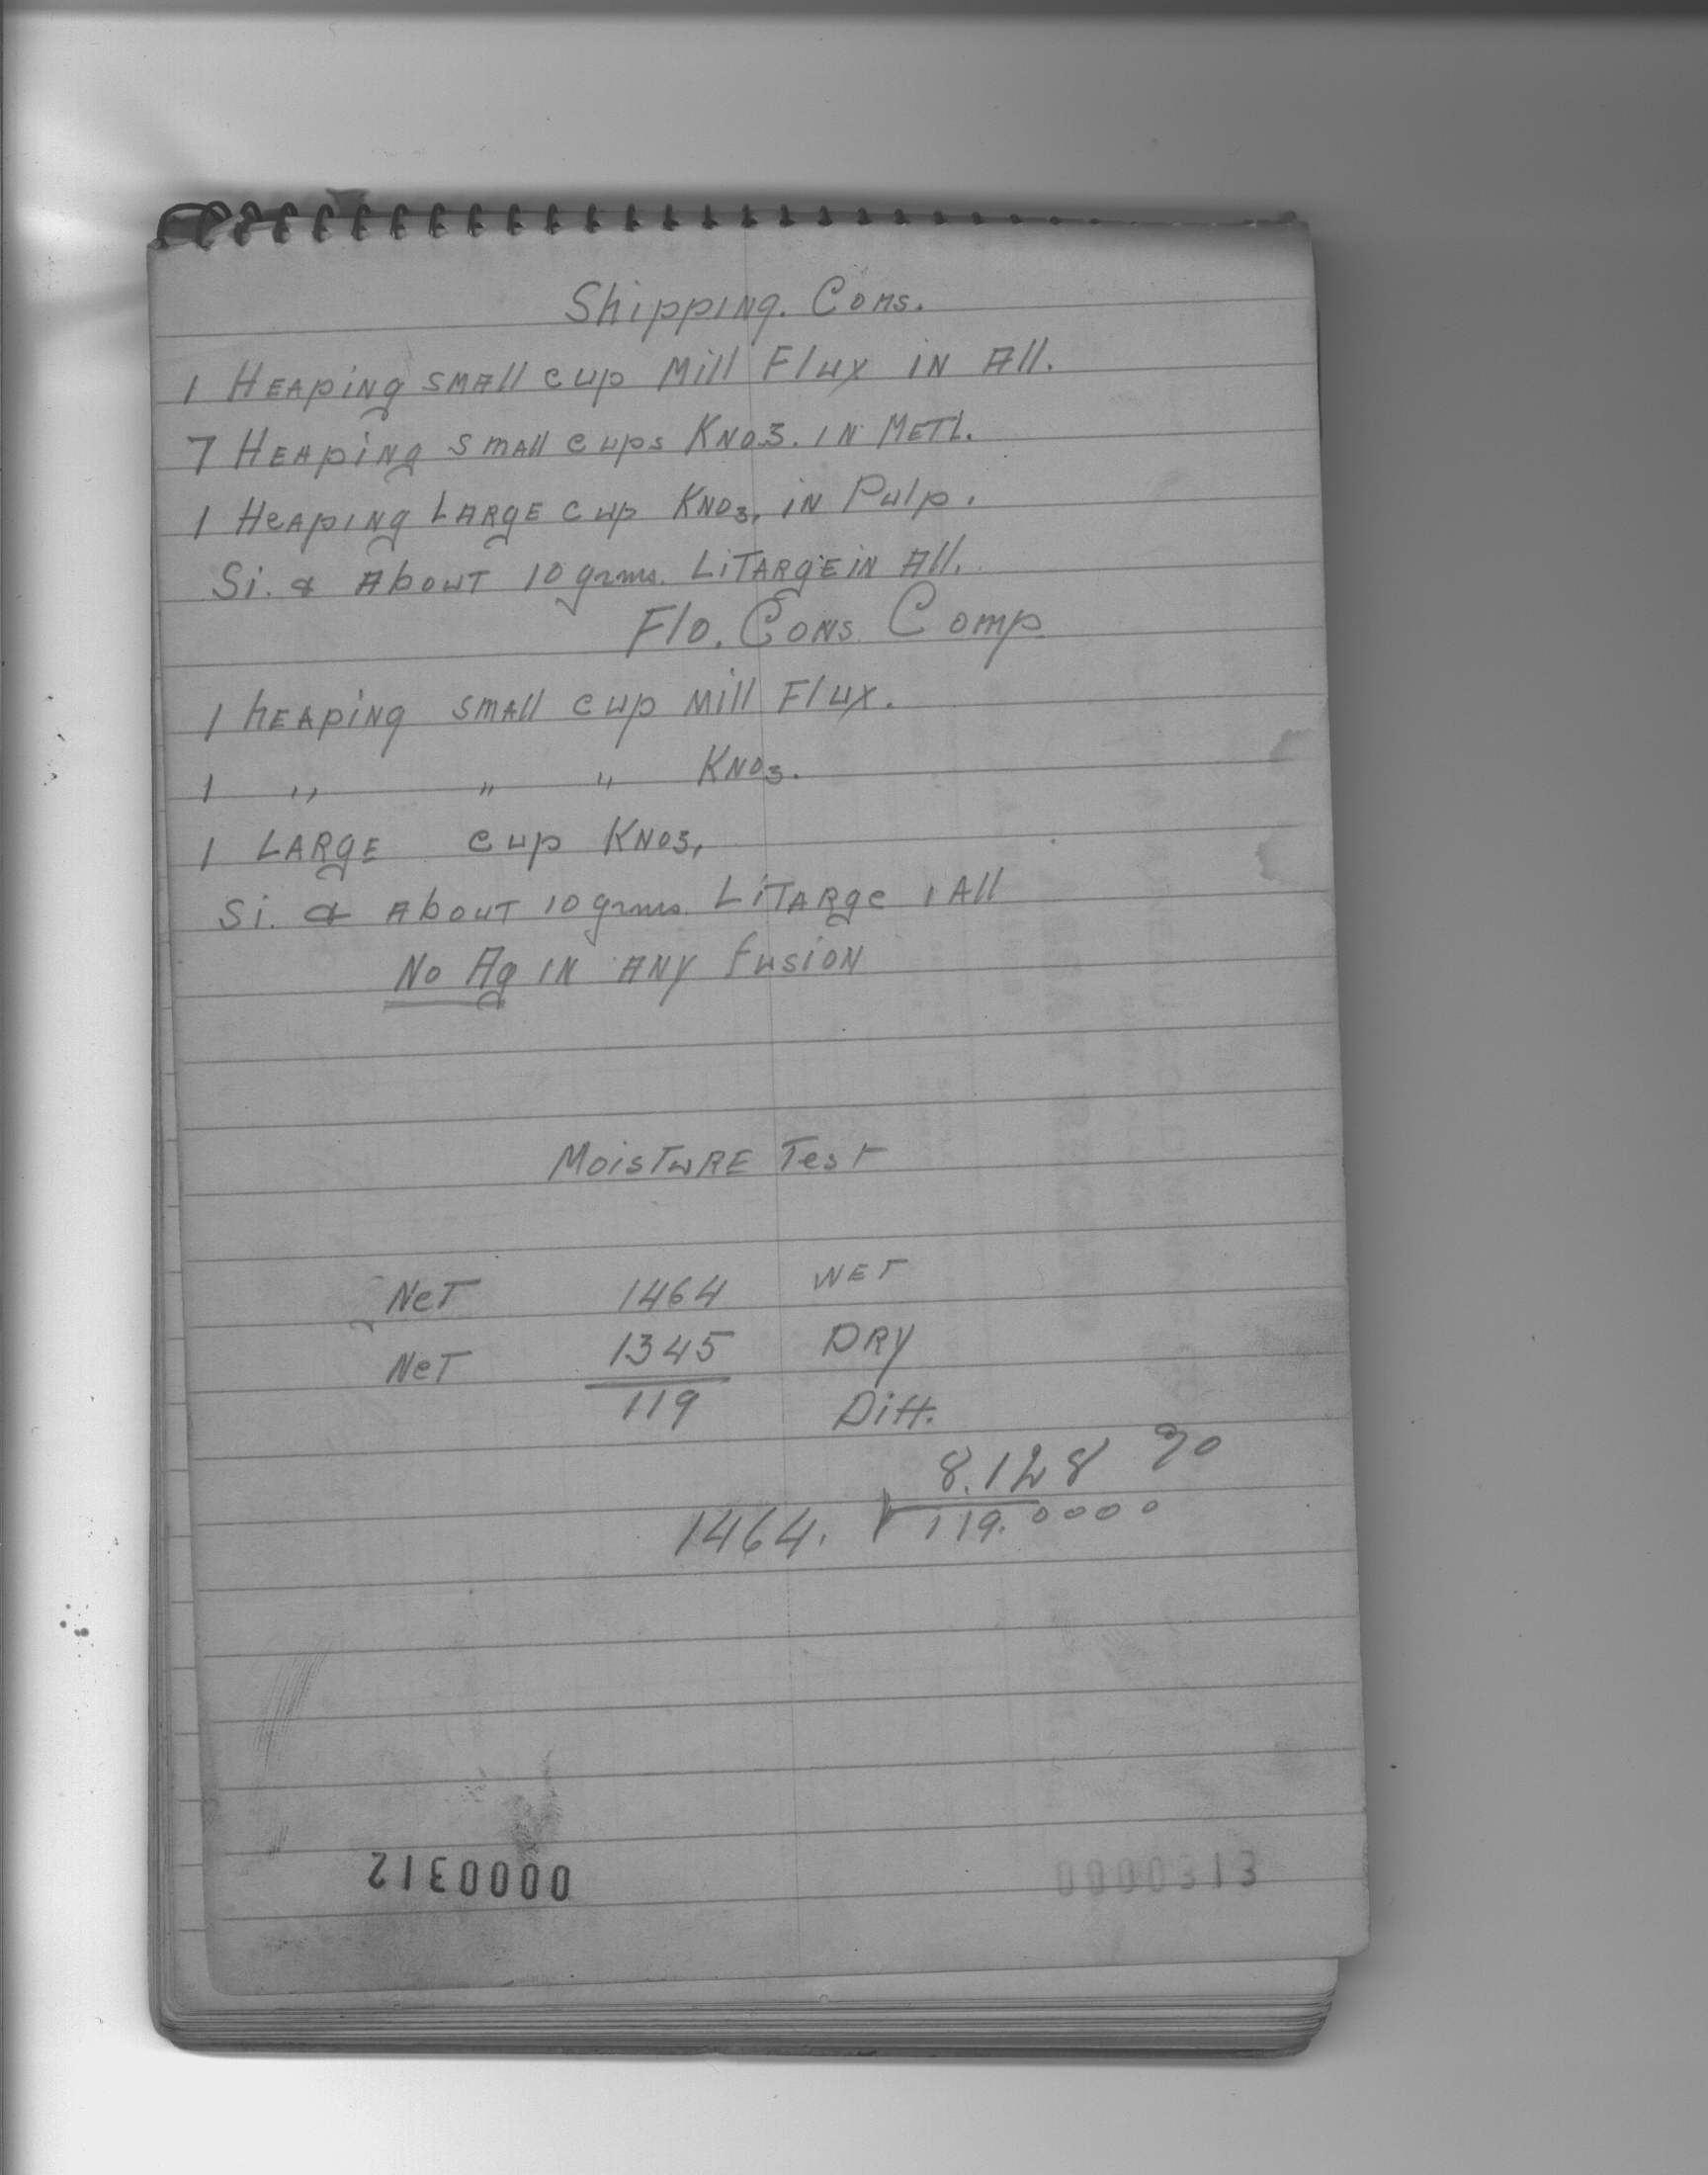 Shipping. Cons.
1 Heaping small cup Mill Flux in All.
7 Heaping small cups KNO3. in Metl.
1 Heaping Large cup KNO3, in Pulp.
Si. & About 10 grms. Litarge in All.
Flo. Cons. Comp
1 heaping small cup mill Flux.
1 " " " KNO3.
1 Large cup KNO3,
Si. & About 10 grms. Litarge 1 All
No Ag in any fusion
Moisture Test
Net 1464 Wet
Net 1345 Dry
119 Diff.
8.128 %
1464. 119.0000
0000312
0000313